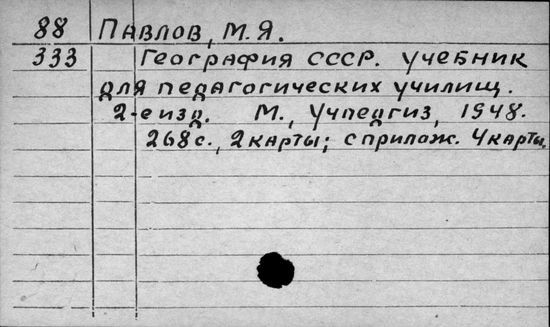 88 Павлов, М.Я.
333 География СССР. учебник
для педагогических училищ.
2-е изд. М., Учпедгиз, 1948.
268с., 2 карты; с прилож. 4 карты.